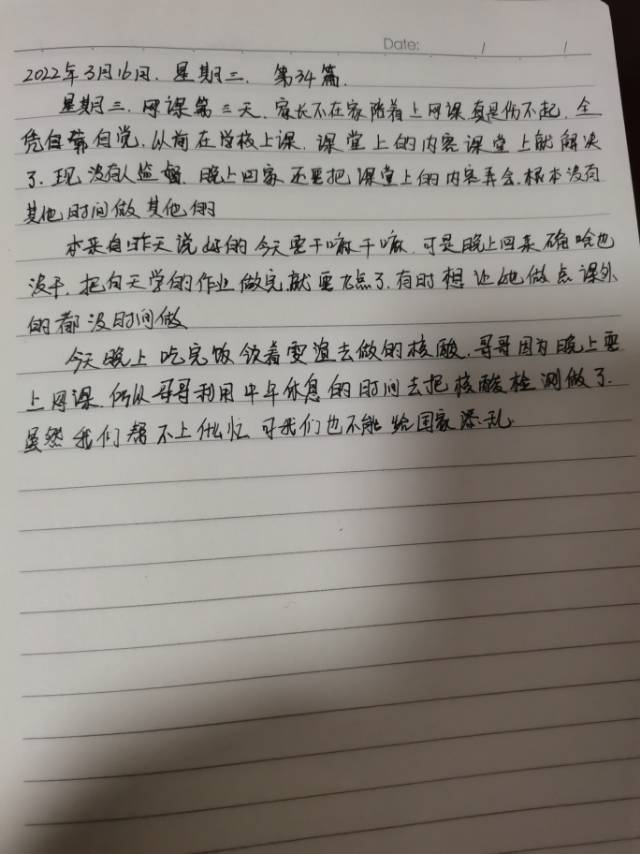 Date: / /
2022年3月16日. 星期三. 第34篇.
星期三.网课第三天.家长不在家陪着上网课真是伤不起.全
凭自靠自觉.从前在学校上课.课堂上的内容课堂上就解决
了.现没有人监督.晚上回家还要把课堂上的内容弄会.根本没有
其他时间做其他的
本来自昨天说好的今天要干嘛干嘛.可是晚上回来确啥也
没干.把白天学的作业做完就要飞点了.有时想让她做点课外
的都没时间做
今天晚上吃完饭领着雯谊去做的核酸.哥哥因为晚上要
上网课.所以哥哥利用中午休息的时间去把核酸检测做了.
虽然我们帮不上什么忙可我们也不能给国家添乱.